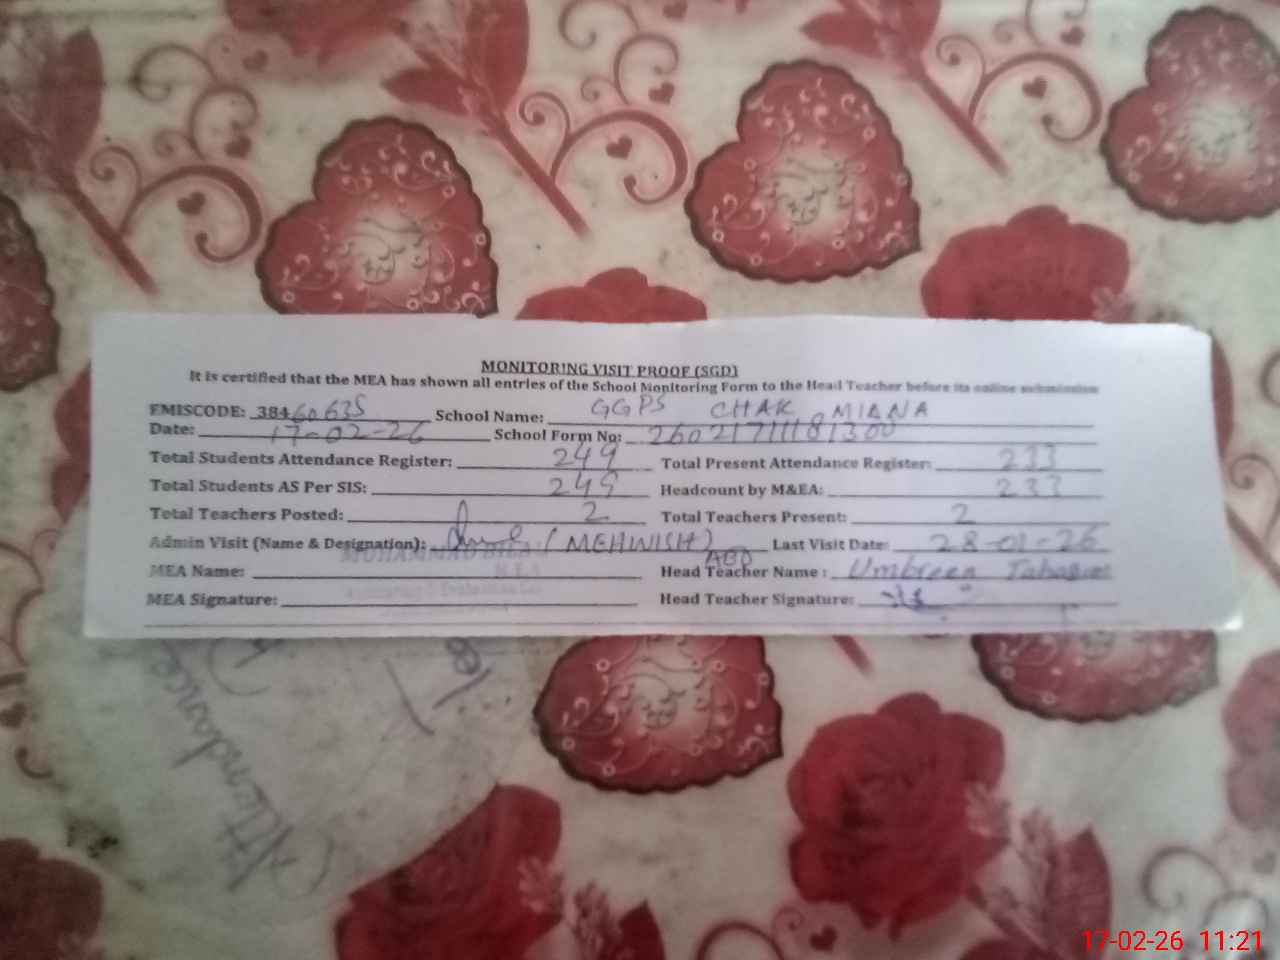 MONITORING VISIT PROOF (SGD)
It is certified that the MEA has shown all entries of the School Monitoring Form to the Head Teacher before its online submission
EMISCODE: 38460635 School Name: GGPS CHAK MIANA
Date: 17-02-26 School Form No: 26021711181300
Total Students Attendance Register: 249 Total Present Attendance Register: 233
Total Students AS Per SIS: 249 Headcount by M&EA: 233
Total Teachers Posted: 2 Total Teachers Present: 2
Admin Visit (Name & Designation): (MEHWISH) Last Visit Date: 28-01-26
MUHAMMAD BILAL
MEA Name: Head Teacher Name : Umbreen
MEA Signature: Head Teacher Signature:
Attendance
17-02-26 11:21